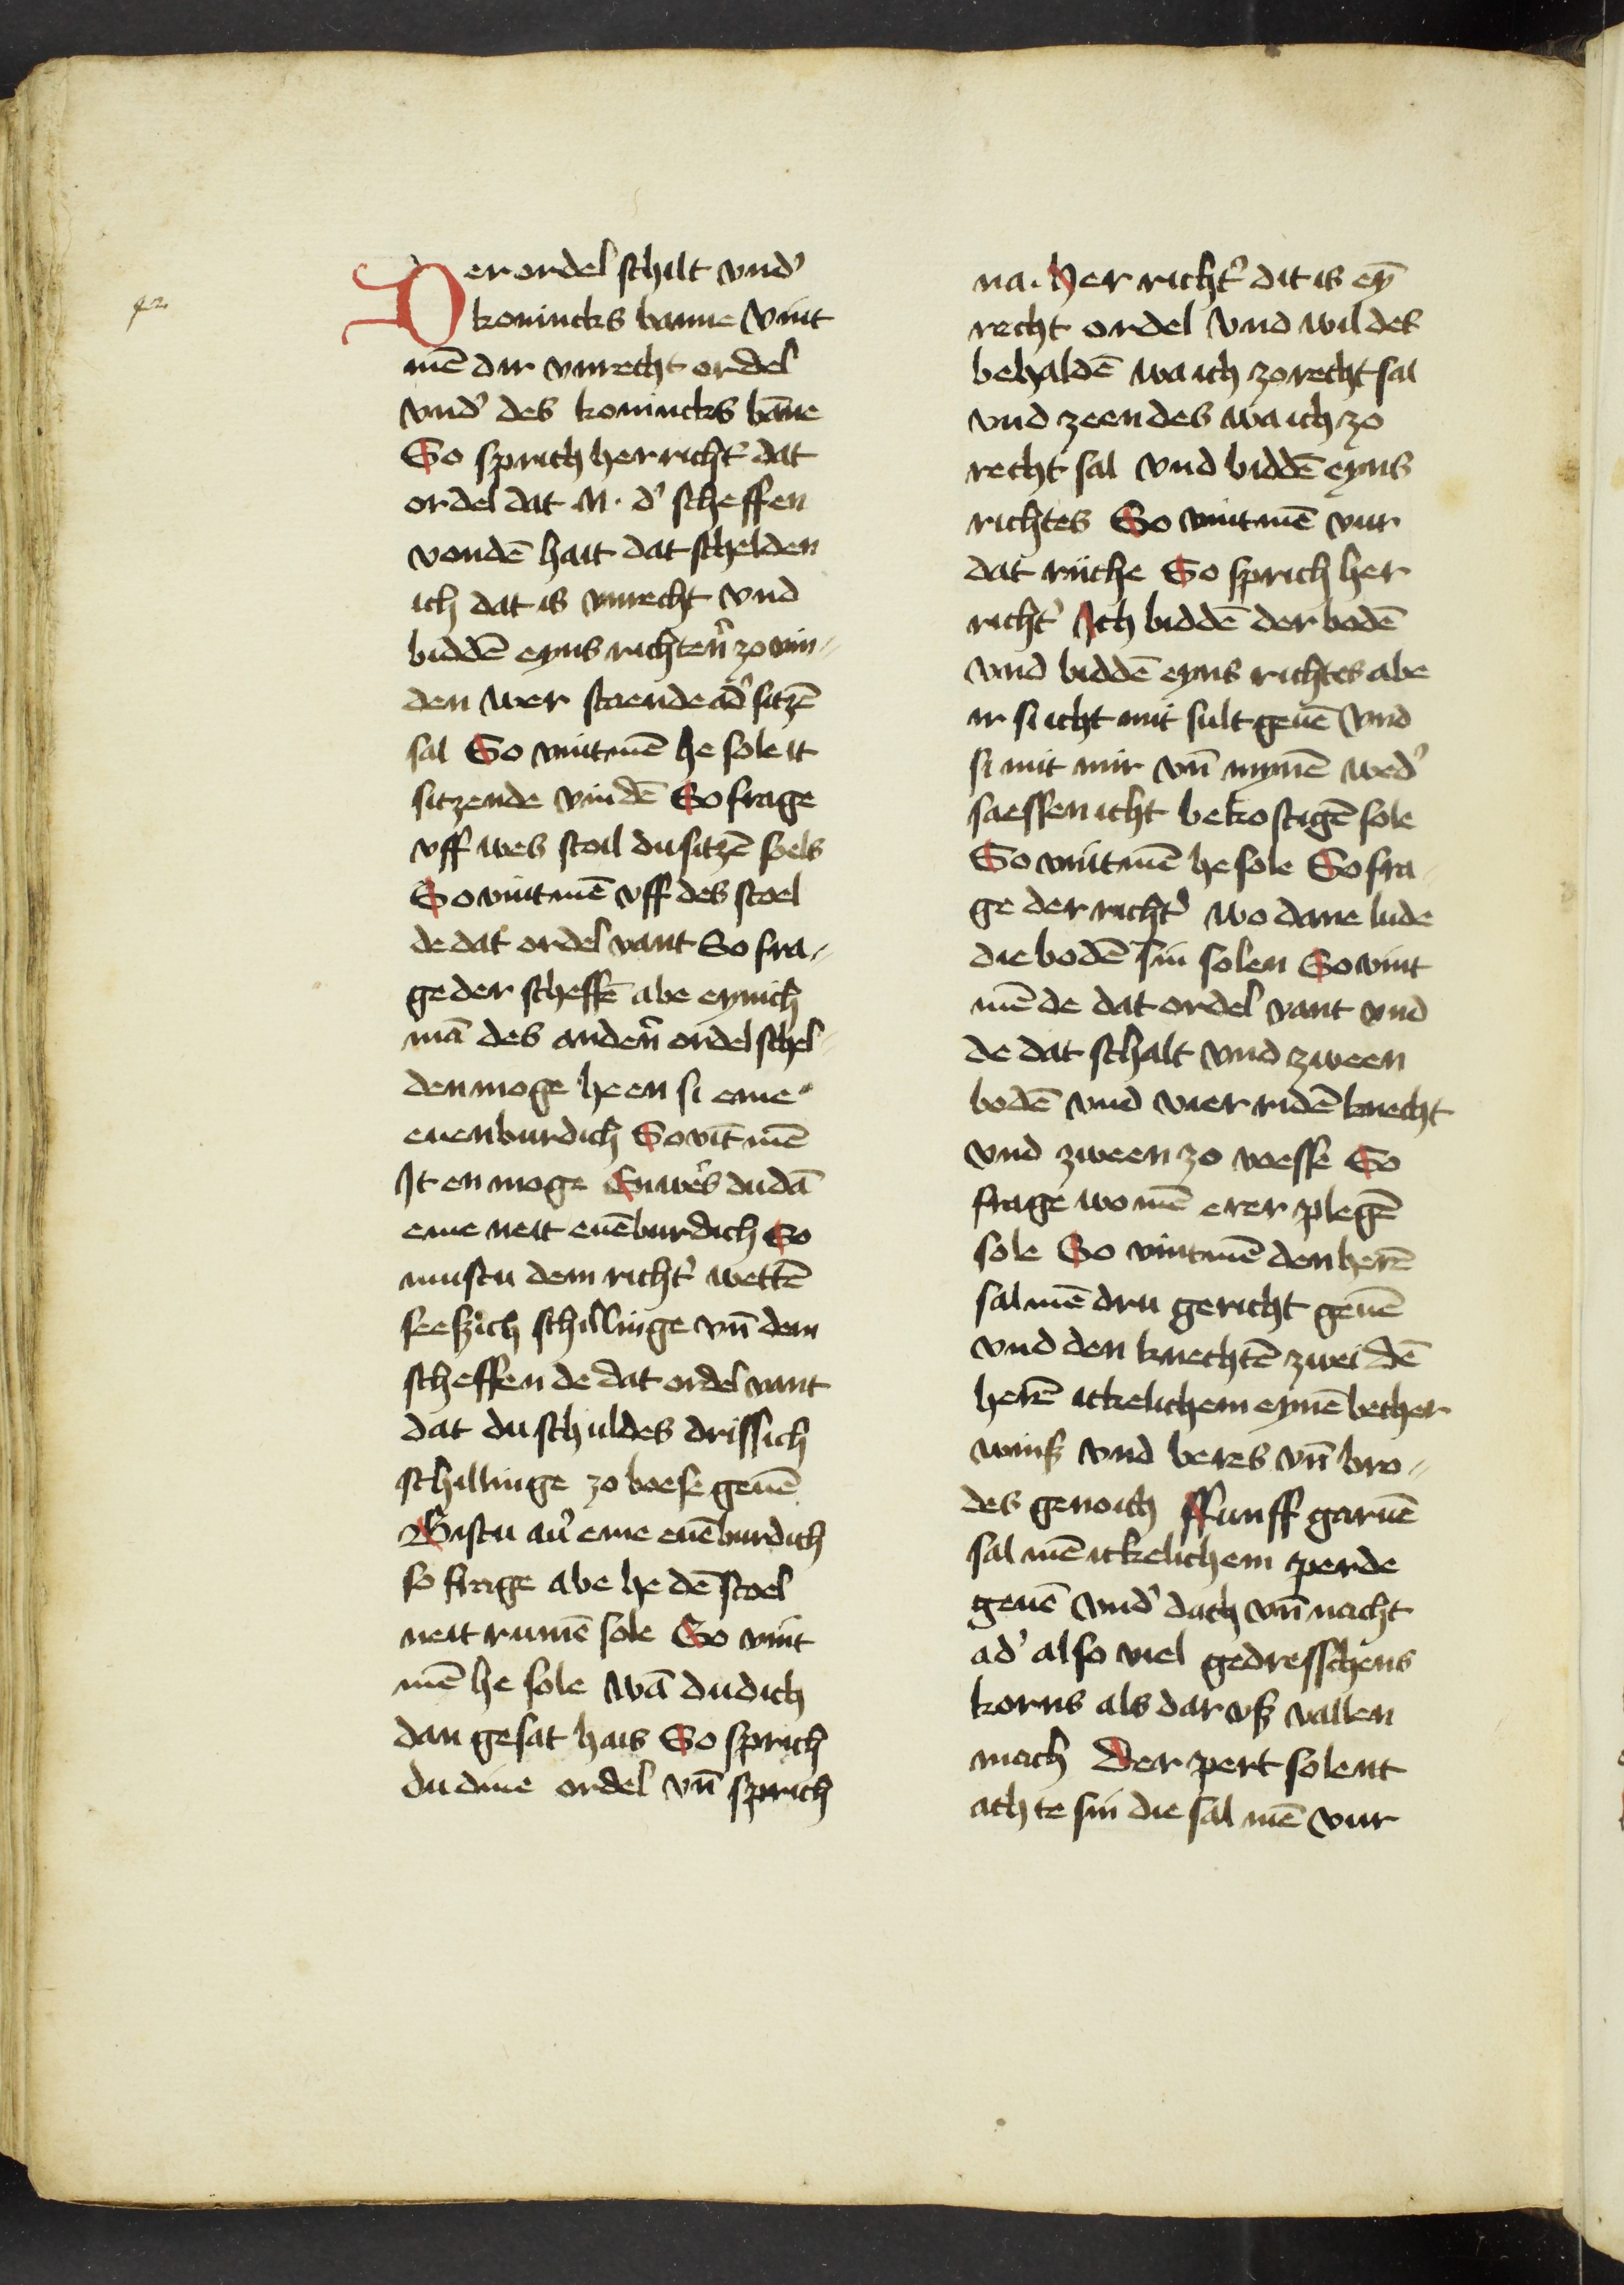 Der ordel schilt vnd'
konincks banne Vint
mē dir vnrecht ordel
vnd' des konincks bāne
So sprich her richt' dat
ordel dat N. d' scheffen
vondē hait dat schelden
ich dat is vnrecht Vnd
biddē eyns richten' zo vin-
den wer stoende ad' sitzē
sal So vintmē he sole it
sitzende vindē So frage
vff wes stoil du sitzē soels
So vintmē vff des stoel
de dat ordel vant So fra-
ge der scheffē abe eynich
mā des anderē ordel schel-
den moge he en si eme
euenburdich So vīt mē
It en moge Enwer's du dā
eme neit euēburdich So
mustu dem richt' wettē
seeszich schillinge vn̄ dem
scheffen de dat ordel vant
dat du schuldes drissich
schillinge zo boese geuē
Bistu au' eme euēburdich
so frage abe he dē stoel
neit rumē sole So vint
mē he sole Wā du dich
dan gesat hais So sprich
du dine ordel vn̄ sprich
na. Her richt' dit is eȳ
recht ordel Vnd wil des
behaldē wa ich zo recht sal
vnd zeen des wa ich zo
recht sal Vnd biddē eyns
richtes So vintmē vur
dat riiche So sprich her
richt' Ich biddē der bodē
Vnd biddē eyns richtes abe
ir si icht mit sult geuē Vnd
si mit mir vn̄ mynē wed'
saessen icht bekostigē sole
So vintmē he sole So fra-
ge der richt' wo dane lude
die bodē sin solen So vint
mē de dat ordel vant vnd
de dat schalt vnd zween
bodē vnd vier ridē knecht
vnd zween zo voesse So
frage wo mē erer plegē
sole So vintmē den herē
sal mē dru gericht geuē
vnd den knechtē zwei dē
herē itkelichem eynē becher
wins vnd beres vn̄ bro-
des genoich Ffunff garuē
sal mē itkelichem perde
geuē vnd' dach vn̄ nacht
ad' also viel gedresschens
korns als dar vsz vallen
mach Der pert solent
achte sin die sal mē vur